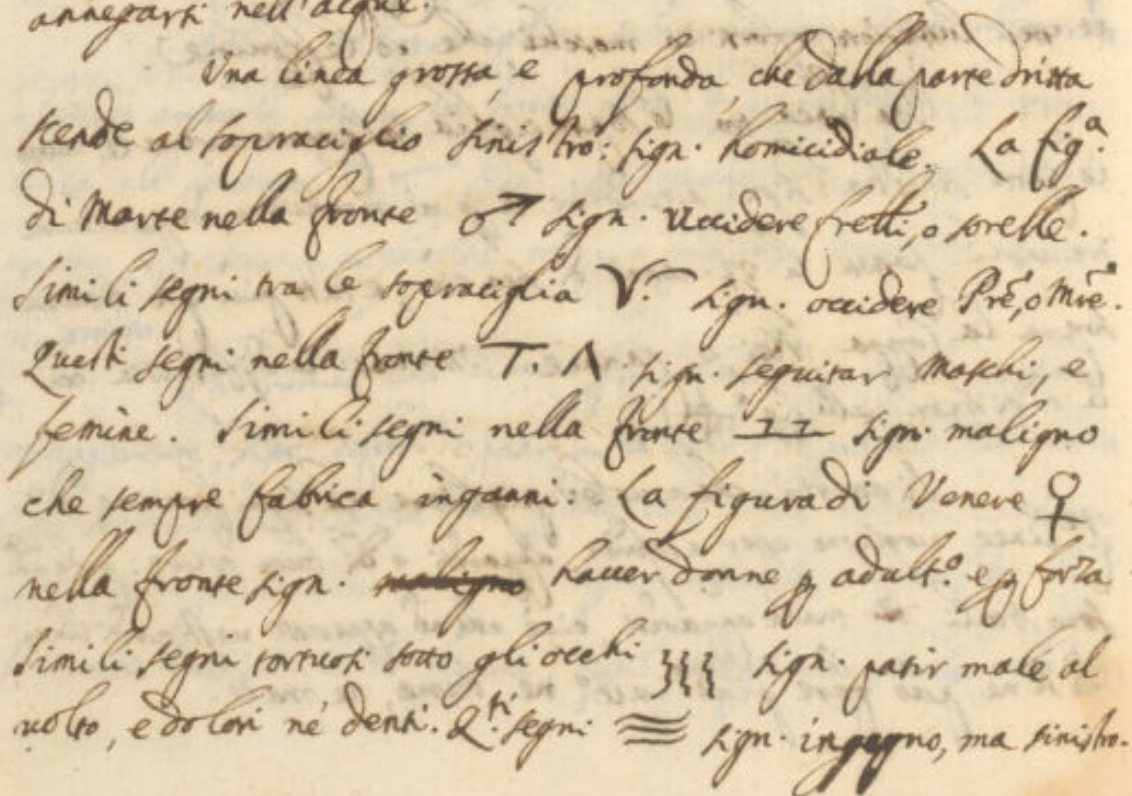 annegarsi nell'acque.
Una linea grossa, e profonda, che dalla parte dritta
scende al sopraciglio sinistro: sign. homicidiale. La fig.ª
di Marte nella fronte ♂ sign. Uccidere frelli, o sorelle.
Simili segni tra le sopraciglia V. sign. occidere Prē, o Mrē.
Questi segni nella fronte T. Λ. sign. seguitar Maschi, e
femine. Simili segni nella fronte sign. maligno
che sempre fabrica inganni: La figura di Venere ♀
nella fronte sign. maligno hauer donne ꝑ adult.º e ꝑ forza
Simili segni tortuosi sotto gli occhi }}} sign. patir male al
uolto, e dolori nè denti. Q.ti segni ≈ sign. ingegno, ma sinistro.